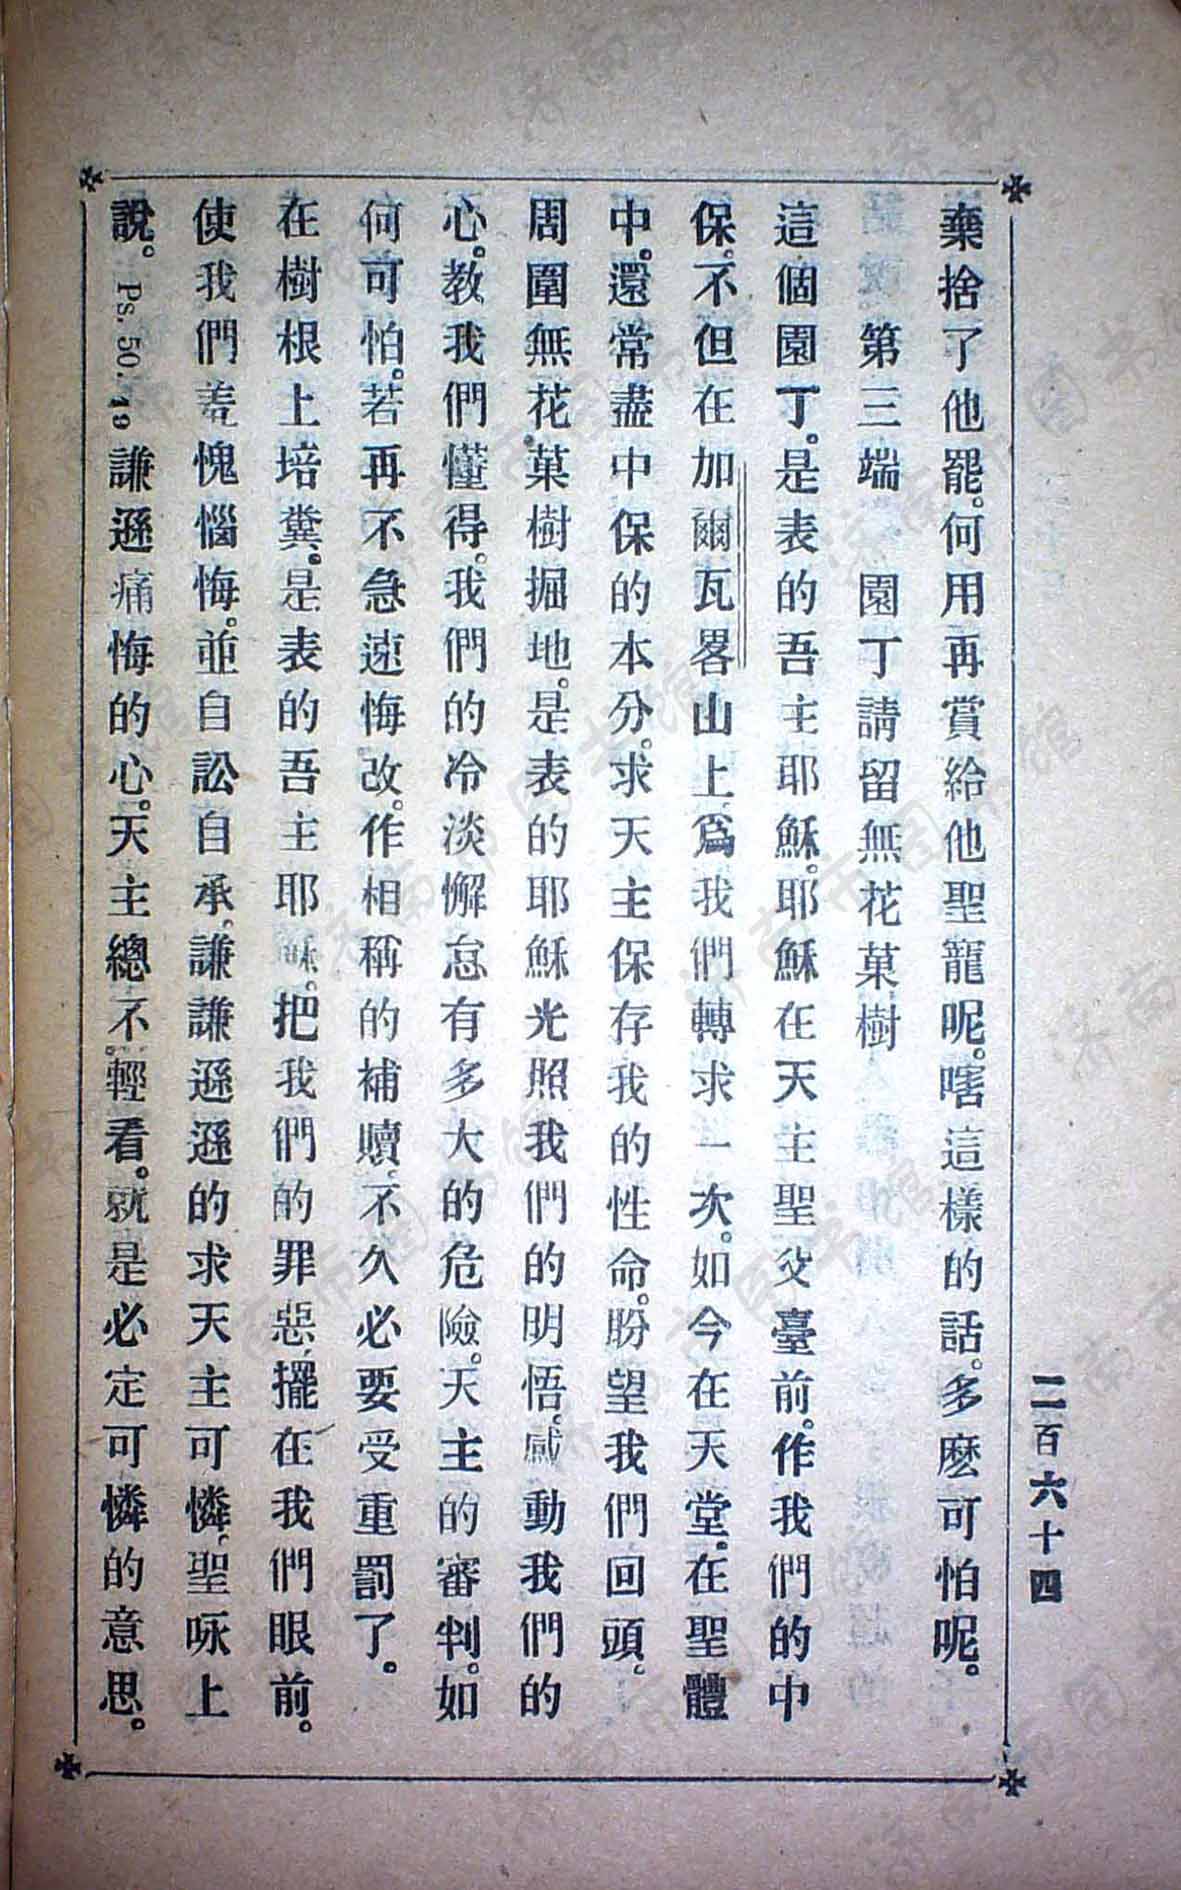 二百六十四
棄捨了他罷。何用再賞給他聖寵呢。嗐這樣的話。多麽可怕呢。
第三端　園丁請留無花菓樹
這個園丁。是表的吾主耶穌。耶穌在天主聖父臺前。作我們的中
保。不但在加爾瓦畧山上、爲我們轉求一次。如今在天堂。在聖體
中。還常盡中保的本分。求天主保存我的性命。盼望我們回頭。
周圍無花菓樹掘地。是表的耶穌光照我們的明悟、感動我們的
心。教我們懂得。我們的冷淡懈怠有多大的危險。天主的審判。如
何可怕。若再不急速悔改。作相稱的補贖、不久必要受重罰了。
在樹根上培糞。是表的吾主耶穌。把我們的罪惡、擺在我們眼前。
使我們羞愧惱悔。並自訟自承、謙謙遜遜的求天主可憐、聖咏上
說。Ps. 50. 19 謙遜痛悔的心。天主總不輕看。就是必定可憐的意思。
濟南市图书馆